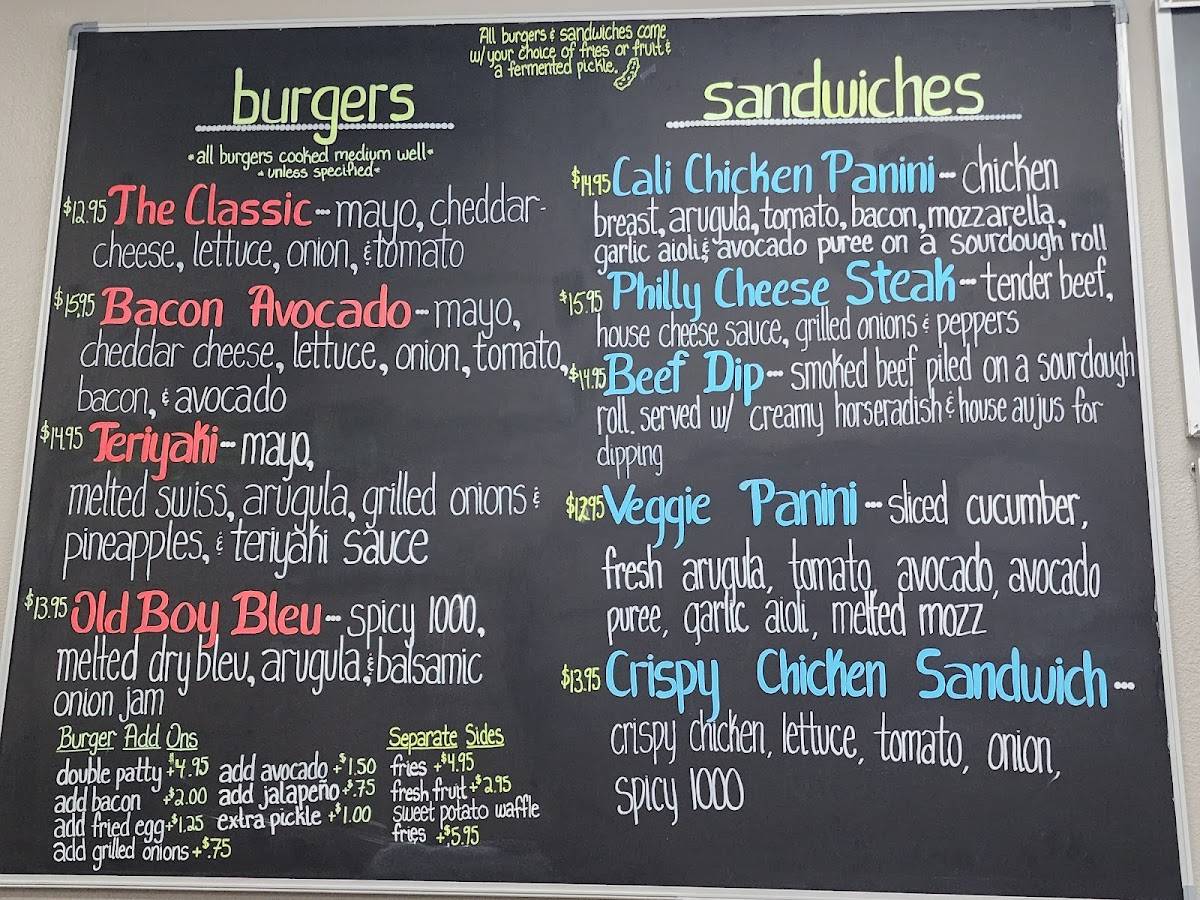 All burgers & sandwiches come
w/ your choice of fries or fruit &
a fermented pickle.
burgers
*all burgers cooked medium well*
*unless specified*
$12.95 The Classic--- mayo, cheddar-
cheese, lettuce, onion, & tomato
$15.95 Bacon Avocado--- mayo,
cheddar cheese, lettuce, onion, tomato,
bacon, & avocado
$14.95 Teriyaki--- mayo,
melted swiss, arugula, grilled onions &
pineapples, & teriyaki sauce
$13.95 Old Boy Bleu--- spicy 1000,
melted dry bleu, arugula, & balsamic
onion jam
Burger Add Ons
double patty +$4.95
add bacon +$2.00
add fried egg +$1.25
add grilled onions +$.75
add avocado +$1.50
add jalapeño +$.75
extra pickle +$1.00
Separate Sides
fries +$4.95
fresh fruit +$2.95
sweet potato waffle
fries +$5.95
sandwiches
$14.95 Cali Chicken Panini--- chicken
breast, arugula, tomato, bacon, mozzarella,
garlic aioli, & avocado puree on a sourdough roll
$15.95 Philly Cheese Steak--- tender beef,
house cheese sauce, grilled onions & peppers
$14.95 Beef Dip--- smoked beef piled on a sourdough
roll. served w/ creamy horseradish & house au jus for
dipping
$12.95 Veggie Panini--- sliced cucumber,
fresh arugula, tomato, avocado, avocado
puree, garlic aioli, melted mozz
$13.95 Crispy Chicken Sandwich---
crispy chicken, lettuce, tomato, onion,
spicy 1000